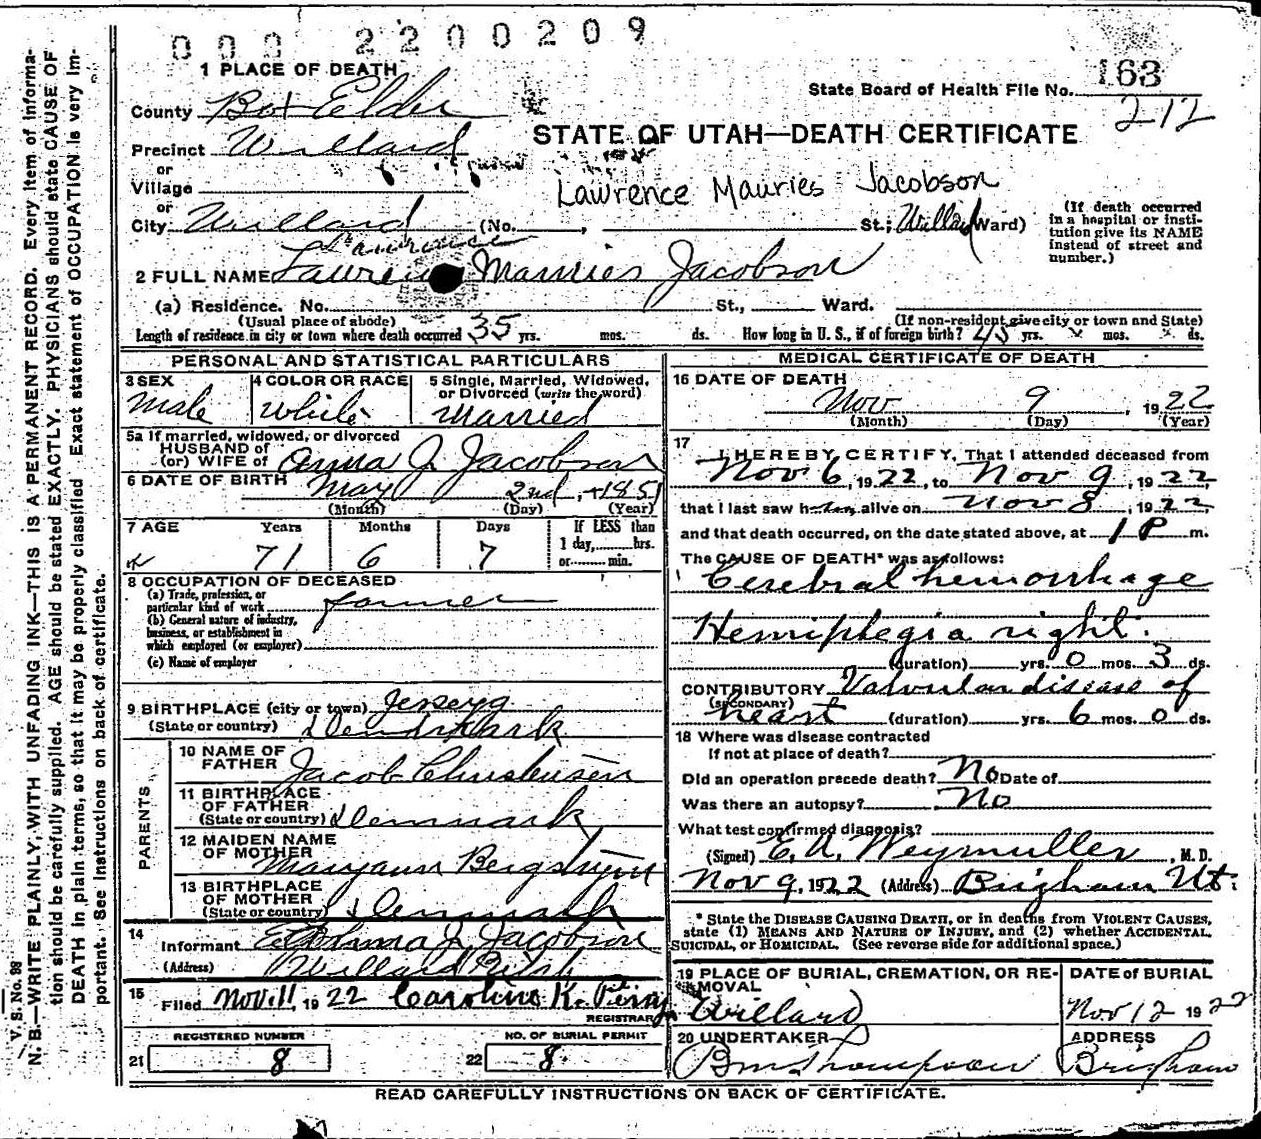 000 2200209
1 PLACE OF DEATH
State Board of Health File No. 163
212
County Box Elder
STATE OF UTAH—DEATH CERTIFICATE
Precinct Willard
or
Village
Lawrence Mauries Jacobson
or
City Willard (No. , St.; Willard Ward)
(If death occurred in a hospital or institution give its NAME instead of street and number.)
Lawrence
2 FULL NAME Mauries Jacobson
(a) Residence. No. St., Ward.
(Usual place of abode) (If non-resident give city or town and State)
Length of residence in city or town where death occurred 35 yrs. mos. ds. How long in U. S., if of foreign birth? 45 yrs. x mos. x ds.
PERSONAL AND STATISTICAL PARTICULARS
3 SEX
Male
4 COLOR OR RACE
White
5 Single, Married, Widowed, or Divorced (write the word)
Married
5a If married, widowed, or divorced
HUSBAND of
(or) WIFE of Anna J. Jacobson
6 DATE OF BIRTH May 2nd, 1851
(Month) (Day) (Year)
7 AGE Years Months Days If LESS than
71 6 7 1 day, hrs.
or min.
8 OCCUPATION OF DECEASED
(a) Trade, profession, or particular kind of work farmer
(b) General nature of industry, business, or establishment in which employed (or employer)
(c) Name of employer
9 BIRTHPLACE (city or town)
(State or country) Denmark
PARENTS
10 NAME OF FATHER Jacob Christensen
11 BIRTHPLACE OF FATHER
(State or country) Denmark
12 MAIDEN NAME OF MOTHER Maryann
13 BIRTHPLACE OF MOTHER
(State or country) Denmark
14
Informant Anna J. Jacobson
(Address) Willard Utah
15
Filed Nov. 11, 1922 Caroline K. Perry
REGISTRAR
REGISTERED NUMBER NO. OF BURIAL PERMIT
21 8 22 8
MEDICAL CERTIFICATE OF DEATH
16 DATE OF DEATH
Nov 9, 1922
(Month) (Day) (Year)
17
I HEREBY CERTIFY, That I attended deceased from
Nov 6, 1922, to Nov 9, 1922,
that I last saw h alive on Nov 8, 1922
and that death occurred, on the date stated above, at 1 P m.
The CAUSE OF DEATH* was as follows:
Cerebral hemorrhage
Hemiplegia right.
(duration) yrs. 0 mos. 3 ds.
CONTRIBUTORY Valvular disease of
(SECONDARY)
heart (duration) yrs. 6 mos. 0 ds.
18 Where was disease contracted
If not at place of death?
Did an operation precede death? No Date of
Was there an autopsy? No
What test confirmed diagnosis?
(Signed) E. A. Weymuller, M. D.
Nov 9, 1922 (Address) Brigham Ut.
* State the DISEASE CAUSING DEATH, or in deaths from VIOLENT CAUSES,
state (1) MEANS AND NATURE OF INJURY, and (2) whether ACCIDENTAL,
SUICIDAL, or HOMICIDAL. (See reverse side for additional space.)
19 PLACE OF BURIAL, CREMATION, OR REMOVAL
Willard
DATE of BURIAL
Nov 12 1922
20 UNDERTAKER
ADDRESS
Brigham
READ CAREFULLY INSTRUCTIONS ON BACK OF CERTIFICATE.
V. S. No. 98
N. B.—WRITE PLAINLY, WITH UNFADING INK—THIS IS A PERMANENT RECORD. Every item of informa-
tion should be carefully supplied. AGE should be stated EXACTLY. PHYSICIANS should state CAUSE OF
DEATH in plain terms, so that it may be properly classified. Exact statement of OCCUPATION is very im-
portant. See instructions on back of certificate.